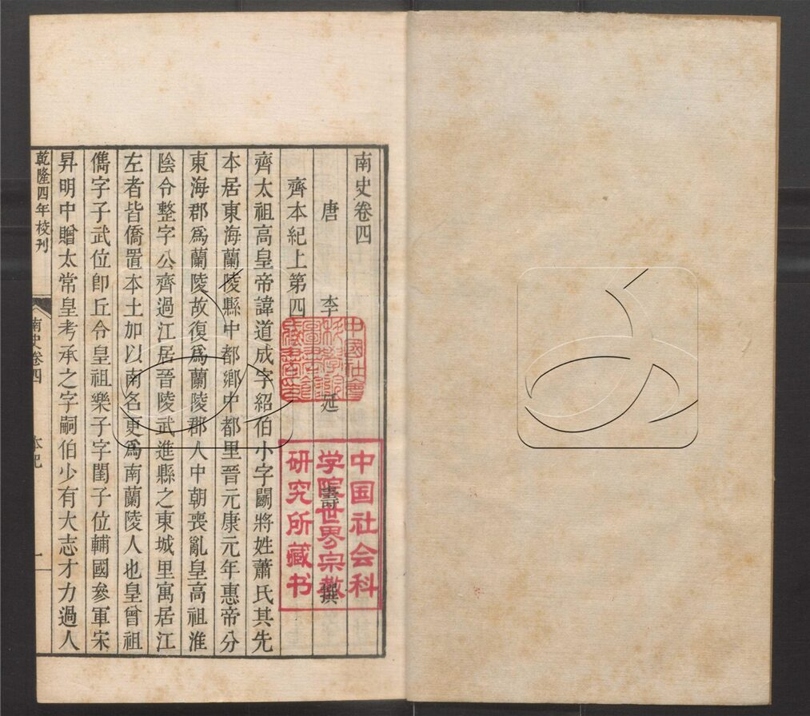 南史卷四
唐 李 延 壽 撰
齊本紀上第四
齊太祖高皇帝諱道成字紹伯小字鬭將姓蕭氏其先
本居東海蘭陵縣中都鄉中都里晉元康元年惠帝分
東海郡爲蘭陵故復爲蘭陵郡人中朝喪亂皇高祖淮
陰令整字公齊過江居晉陵武進縣之東城里寓居江
左者皆僑置本土加以南名更爲南蘭陵人也皇曾祖
儁字子武位卽丘令皇祖樂子字閨子位輔國參軍宋
昇明中贈太常皇考承之字嗣伯少有大志才力過人
乾隆四年校刊
南史卷四
本紀
一
中國社會
科學院
圖書館
中国社会科
学院世界宗教
研究所藏书